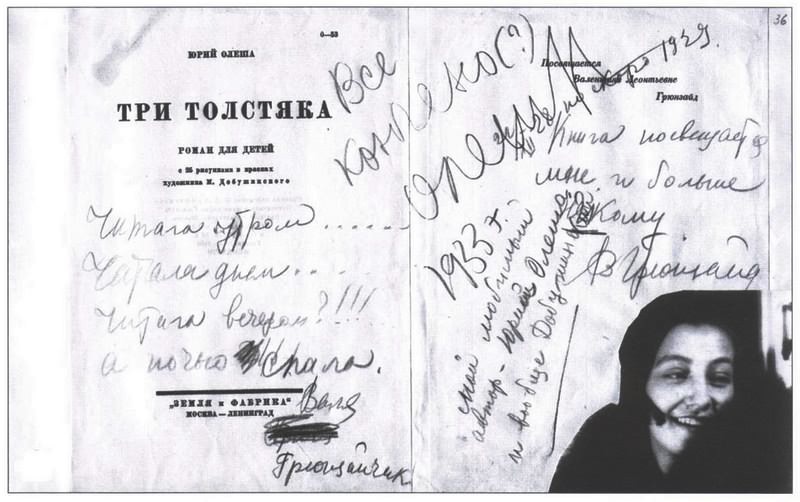 0—53
ЮРИЙ ОЛЕША
ТРИ ТОЛСТЯКА
РОМАН ДЛЯ ДЕТЕЙ
с 25 рисунками в красках
художника М. Добужинского
Читала утром......
Читала днем...
Читала вечером?!!!
а ночью спала.
„ЗЕМЛЯ и ФАБРИКА“
МОСКВА—ЛЕНИНГРАД
Валя
Грюнзайчик
Все
конечно(?)
36
Посвящается
Валентине Леонтьевне
Грюнзайд
1929.
Книга посвещается
мне и больше
никому
В Грюнзайд
1933 г.
мой любимый
автор - Юрий Олеша,
и вообще Добужинский